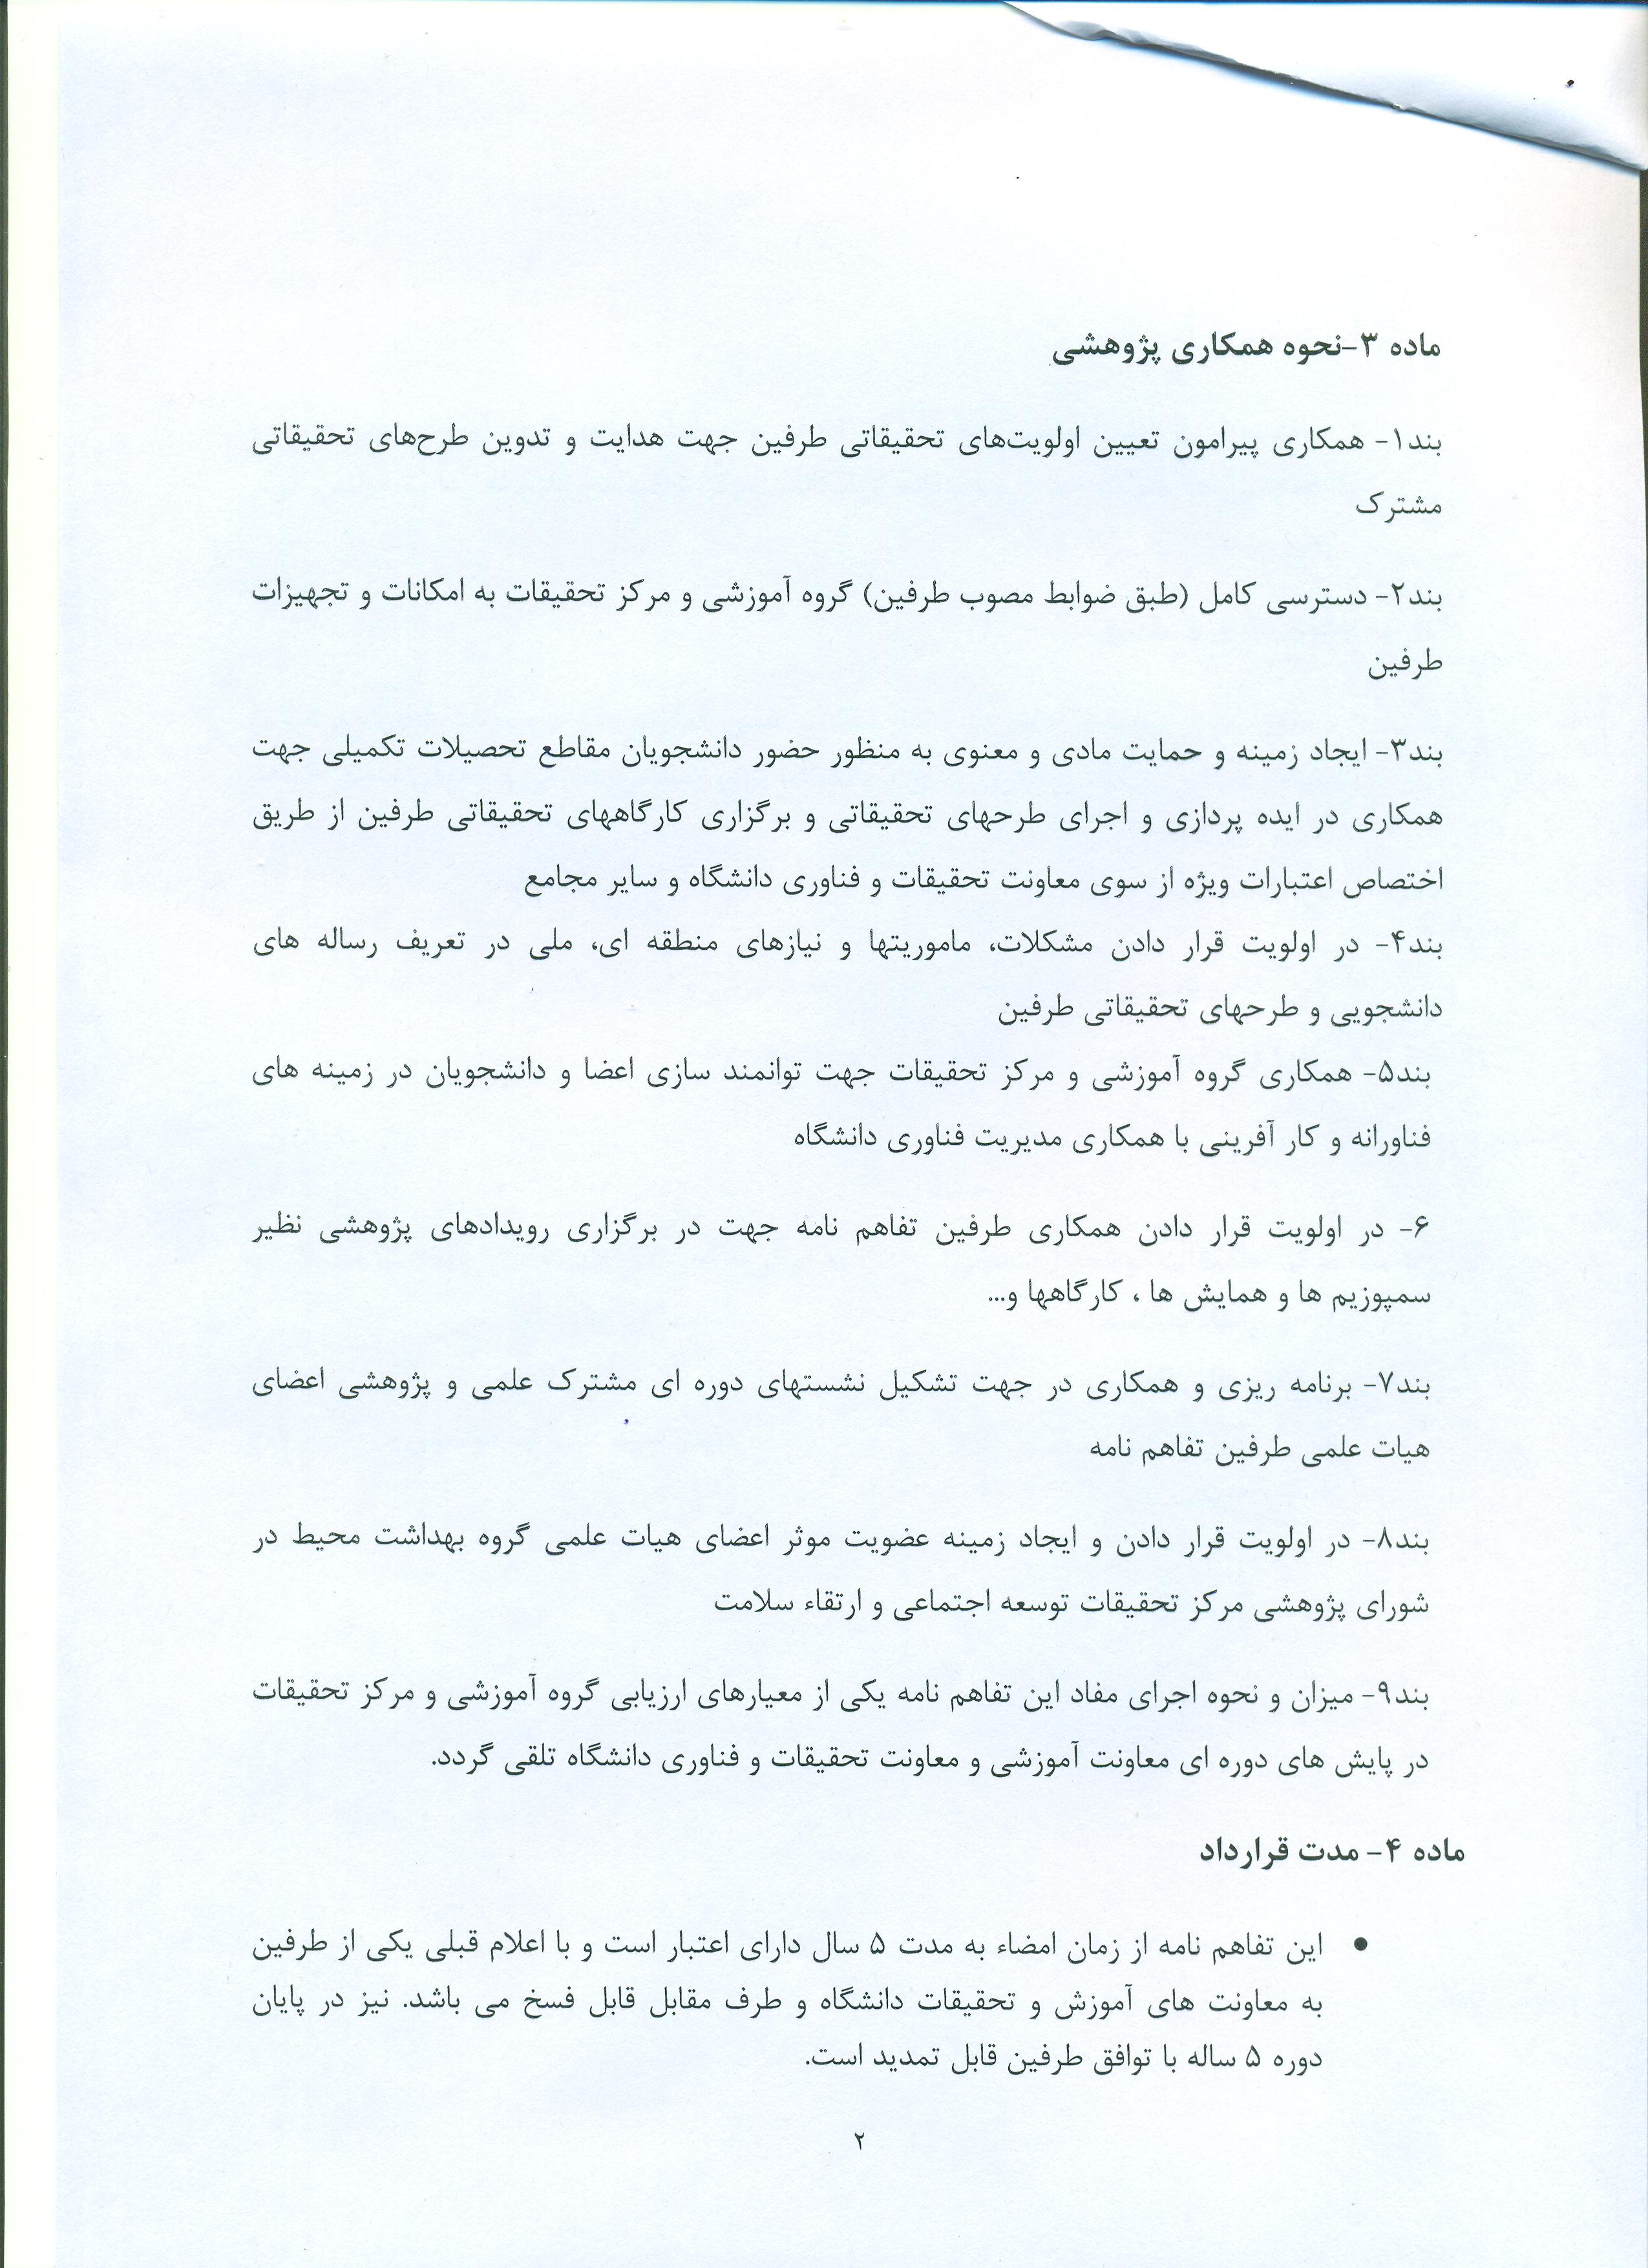 ماده ۳-نحوه همکاری پژوهشی
بند۱- همکاری پیرامون تعیین اولویت‌های تحقیقاتی طرفین جهت هدایت و تدوین طرح‌های تحقیقاتی
مشترک
بند۲- دسترسی کامل (طبق ضوابط مصوب طرفین) گروه آموزشی و مرکز تحقیقات به امکانات و تجهیزات
طرفین
بند۳- ایجاد زمینه و حمایت مادی و معنوی به منظور حضور دانشجویان مقاطع تحصیلات تکمیلی جهت
همکاری در ایده پردازی و اجرای طرحهای تحقیقاتی و برگزاری کارگاههای تحقیقاتی طرفین از طریق
اختصاص اعتبارات ویژه از سوی معاونت تحقیقات و فناوری دانشگاه و سایر مجامع
بند۴- در اولویت قرار دادن مشکلات، ماموریتها و نیازهای منطقه ای، ملی در تعریف رساله های
دانشجویی و طرحهای تحقیقاتی طرفین
بند۵- همکاری گروه آموزشی و مرکز تحقیقات جهت توانمند سازی اعضا و دانشجویان در زمینه های
فناورانه و کار آفرینی با همکاری مدیریت فناوری دانشگاه
۶- در اولویت قرار دادن همکاری طرفین تفاهم نامه جهت در برگزاری رویدادهای پژوهشی نظیر
سمپوزیم ها و همایش ها ، کارگاهها و...
بند۷- برنامه ریزی و همکاری در جهت تشکیل نشستهای دوره ای مشترک علمی و پژوهشی اعضای
هیات علمی طرفین تفاهم نامه
بند۸- در اولویت قرار دادن و ایجاد زمینه عضویت موثر اعضای هیات علمی گروه بهداشت محیط در
شورای پژوهشی مرکز تحقیقات توسعه اجتماعی و ارتقاء سلامت
بند۹- میزان و نحوه اجرای مفاد این تفاهم نامه یکی از معیارهای ارزیابی گروه آموزشی و مرکز تحقیقات
در پایش های دوره ای معاونت آموزشی و معاونت تحقیقات و فناوری دانشگاه تلقی گردد.
ماده ۴- مدت قرارداد
• این تفاهم نامه از زمان امضاء به مدت ۵ سال دارای اعتبار است و با اعلام قبلی یکی از طرفین
به معاونت های آموزش و تحقیقات دانشگاه و طرف مقابل قابل فسخ می باشد. نیز در پایان
دوره ۵ ساله با توافق طرفین قابل تمدید است.
۲